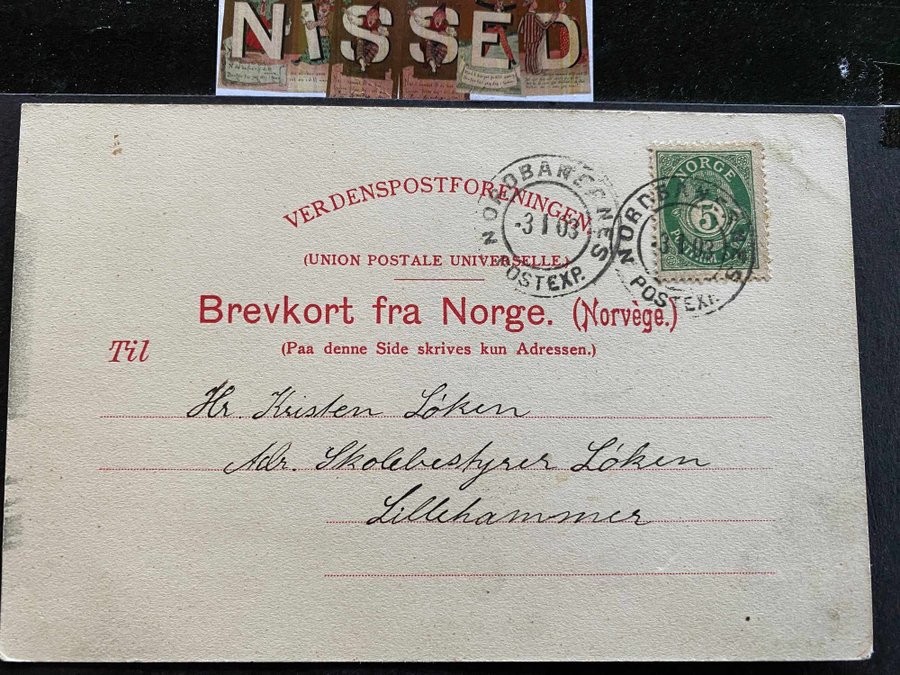 NISSED
VERDENSPOSTFORENINGEN.
(UNION POSTALE UNIVERSELLE.)
Brevkort fra Norge. (Norvège.)
(Paa denne Side skrives kun Adressen.)
Til
Hr. Kristen Løken
Adr. Skolebestyrer Løken
Lillehammer
NORDBANERNES
-3 I 03
POSTEXP.
NORGE
5
NORDBANERNES
-3 I 03
POSTEXP.